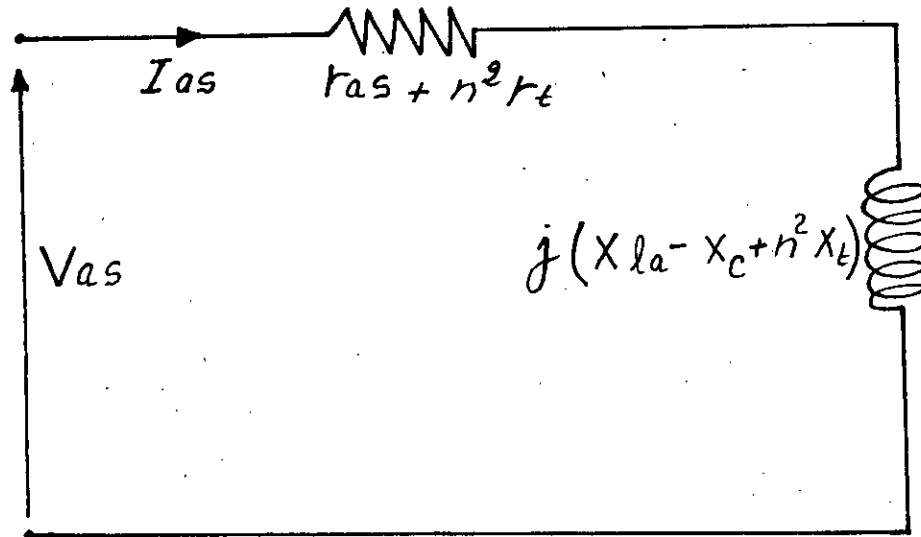 Ias
ras + n²rt
Vas
j(Xla - Xc + n²Xt)